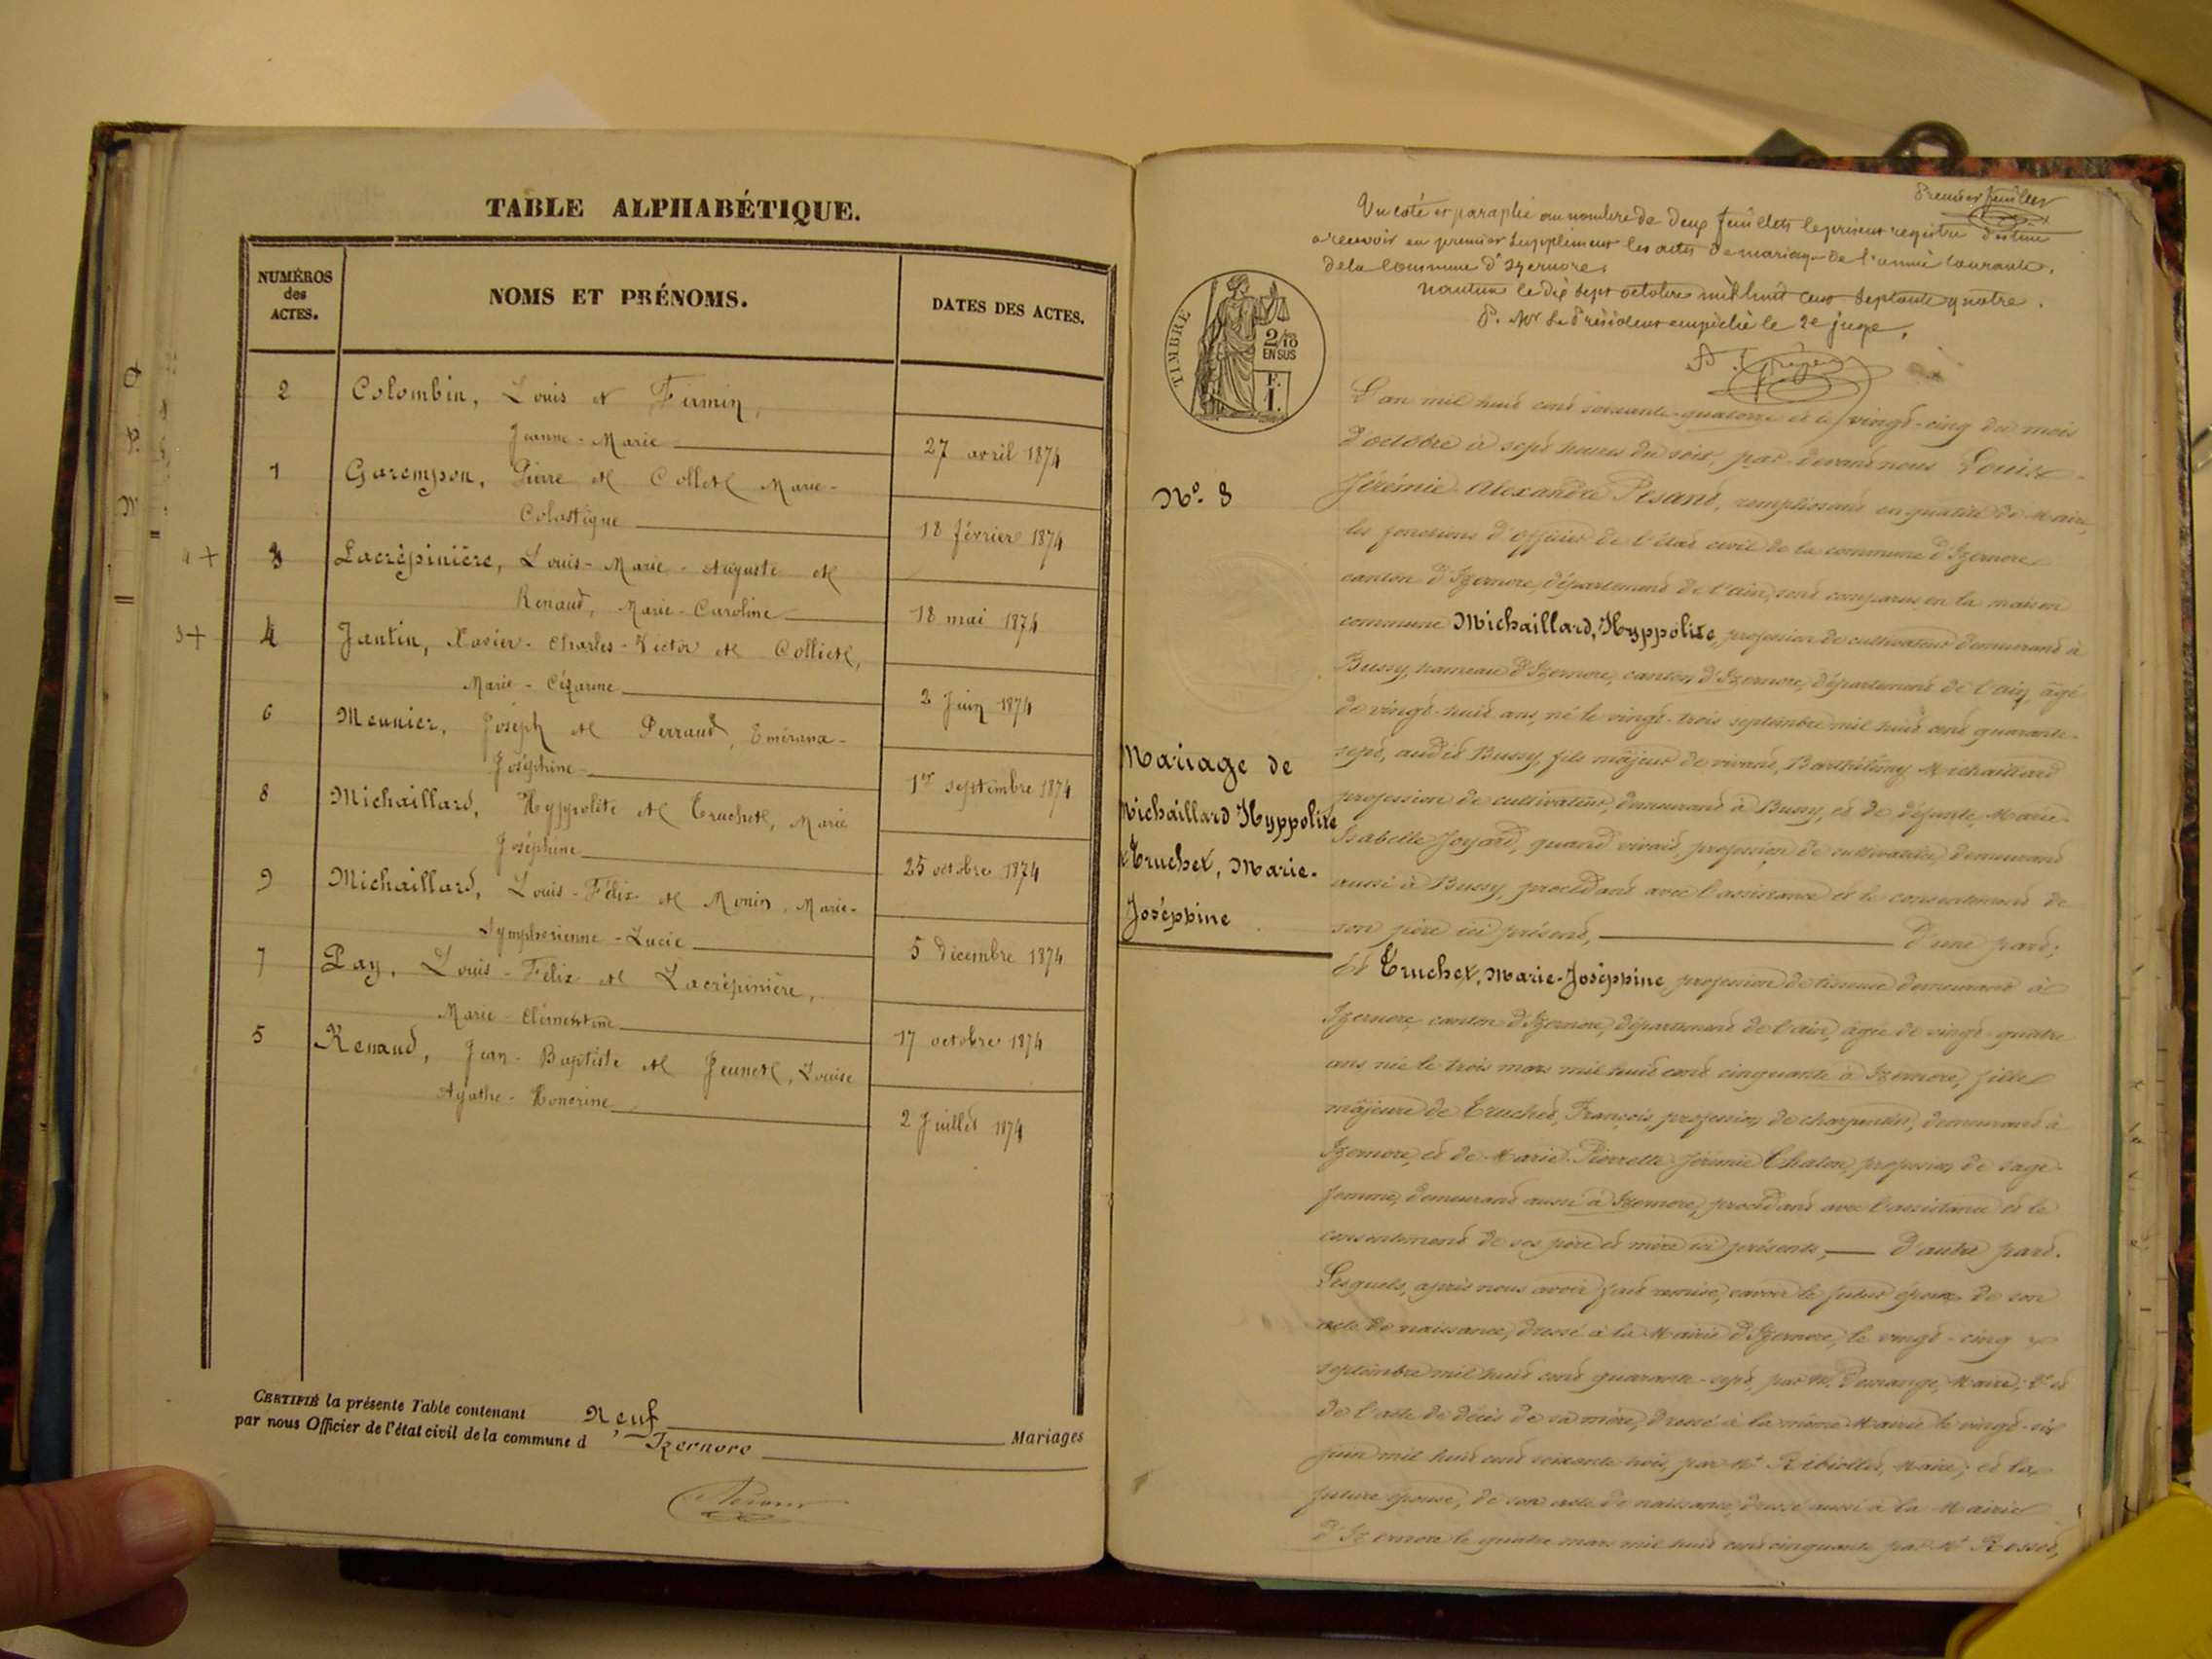 TABLE ALPHABÉTIQUE.
NUMÉROS des ACTES.
NOMS ET PRÉNOMS.
DATES DES ACTES.
2 Colombin, Louis et Firmin,
Jeanne-Marie 27 avril 1874
1 Garempon, Pierre et Collet Marie-
Colastique 18 février 1874
4+ 3 Lacrépinière, Louis-Marie-Auguste et
Renaud, Marie-Caroline 18 mai 1874
3+ 4 Jantin, Xavier-Charles-Victor et Colliet,
Marie-Cézarine 2 Juin 1874
6 Meunier, Joséph et Perraud, Emérana-
Joséphine 1er septembre 1874
8 Michaillard, Hyppolite et Truchet, Marie
Joséphine 25 octobre 1874
9 Michaillard, Louis-Félix et Monin, Marie-
Symphorienne-Lucie 5 décembre 1874
7 Pay, Louis-Félix et Lacrépinière,
Marie-Clémentine 17 octobre 1874
5 Renaud, Jean-Baptiste et Jeunet, Louise
Agathe-Honorine 2 Juillet 1874
CERTIFIÉ la présente Table contenant Neuf Mariages
par nous Officier de l'état civil de la commune d'Izernore
Pesant
Premier feuillet
Vu coté et paraphé au nombre de deux feuillets le présent registre destiné
a recevoir en premier supplément les actes de mariage de l'année courante,
de la Commune d'Izernore.
Nantua le dix sept octobre mil huit cent septante quatre.
P. Mr Le Président empêché le 2e juge,
TIMBRE
2/10
EN SUS
F.
1.
L'an mil huit cent soixante-quatorze et le vingt-cinq du mois
d'octobre à sept heures du soir, par-devant nous Louis
No. 8
Jérémie Alexandre Pesant, remplissant en qualité de Maire,
les fonctions d'officier de l'état civil de la commune d'Izernore
canton d'Izernore, département de l'ain, sont comparus en la maison
commune Michaillard, Hyppolite, profession de cultivateur demeurant à
Bussy, hameau d'Izernore, canton d'Izernore, département de l'ain, âgé
de vingt-huit ans, né le vingt-trois septembre mil huit cent quarante-
sept, audit Bussy, fils majeur de vivant, Barthélemy Michaillard
Mariage de
Michaillard Hyppolite
& Truchet, Marie-
Joséphine
profession de cultivateur, demeurant à Bussy, et de défunte, Marie-
Isabelle Joyard, quand vivait, profession de cultivatrice, demeurant
aussi à Bussy, procédant avec l'assistance et le consentement de
son père ici présent, d'une part;
Et Truchet, Marie-Joséphine, profession de tisseuse demeurant à
Izernore, canton d'Izernore, département de l'ain, âgée de vingt-quatre
ans née le trois mars mil huit cent cinquante à Izernore, fille
majeure de Truchet, François, profession de charpentier, demeurant à
Izernore, et de Marie-Pierrette Jérémie Chalon, profession de sage-
femme, demeurant aussi à Izernore, procédant avec l'assistance et le
consentement de ses père et mère ici présents, d'autre part.
Lesquels, après nous avoir fait remise, savoir le futur époux de son
acte de naissance, dressé à la Mairie d'Izernore, le vingt-cinq
septembre mil huit cent quarante-sept, par M. Maire; 2° et
de l'acte de décès de sa mère, dressé à la même Mairie le vingt-six
juin mil huit cent soixante trois, par Mr Ribiollet, Maire; et la
future épouse, de son acte de naissance, dressé aussi à la Mairie
d'Izernore le quatre mars mil huit cent cinquante par Mr Rosset,